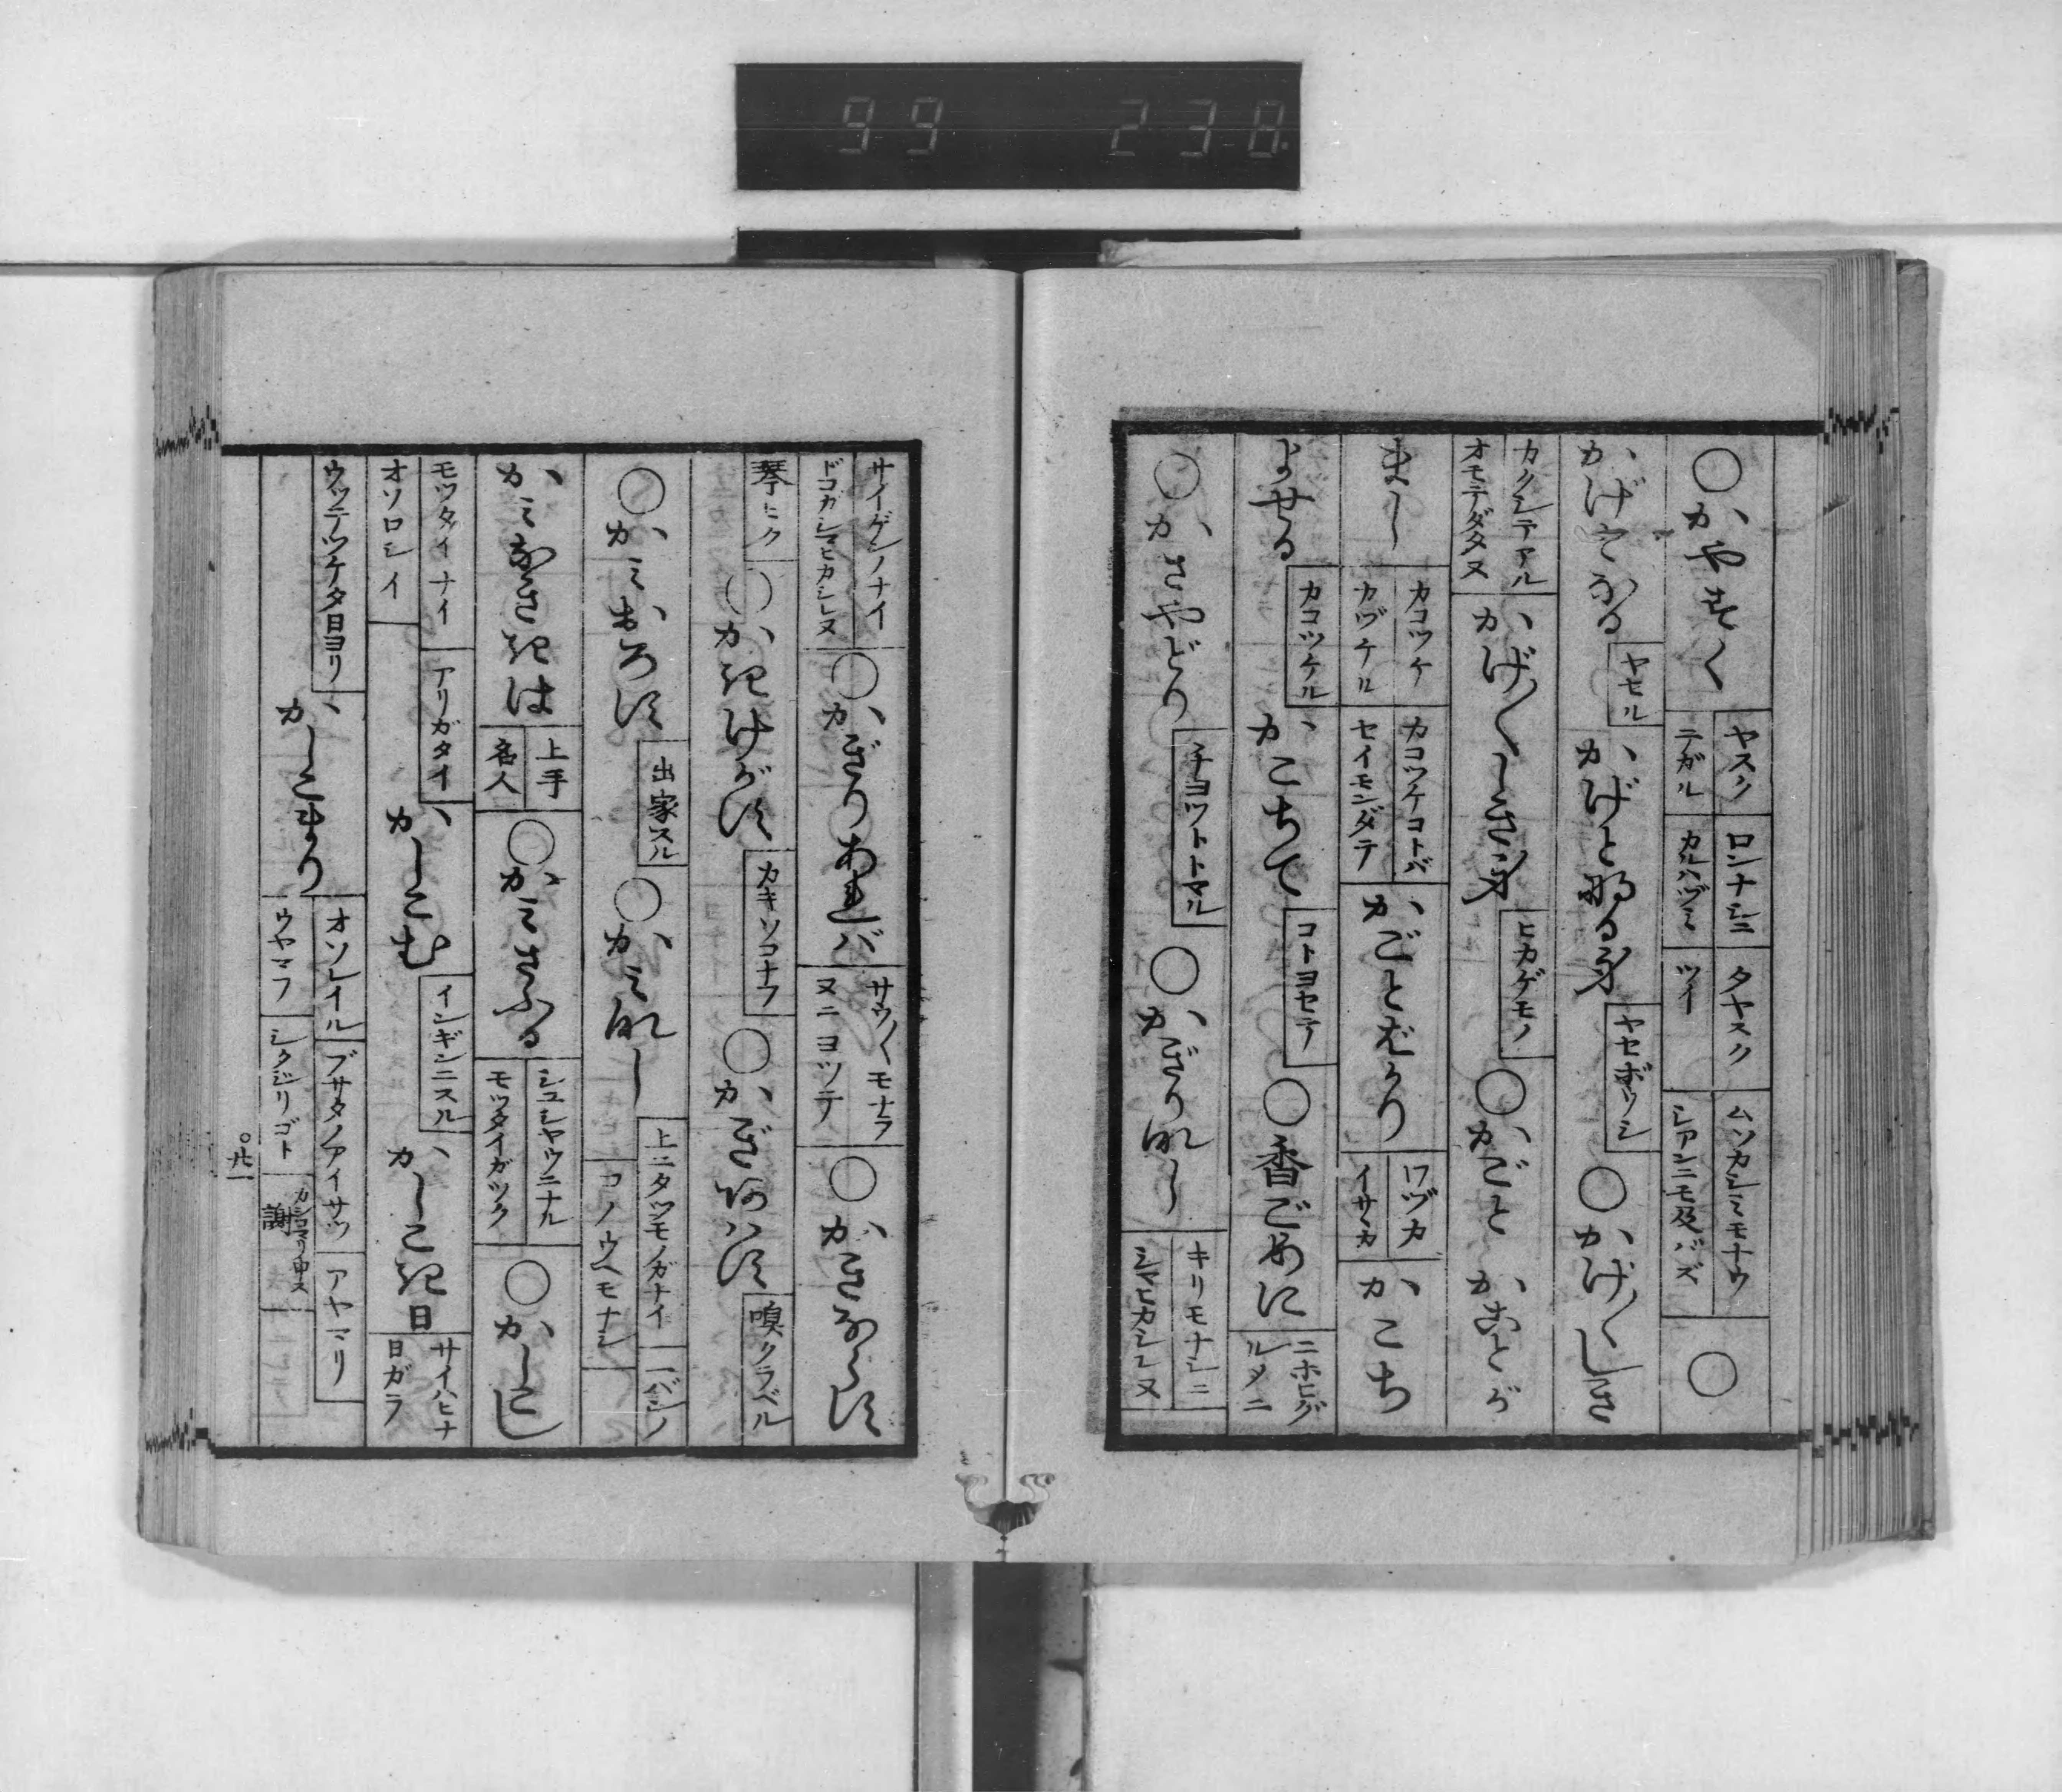 99 238
○かやすく ヤスク ニガル ロンナシニ カルハヅミ タヤスク ツイ ムツカシミモナウ シアンニモ及バズ ○
かげになる ヤセル かげと成る身 ヤセボウシ ○かげ〳〵しき
カクシテアル オモテダタヌ かげ〳〵しき身 ヒカゲモノ ○かごと かことが
まし カコツケ カヅケル カコツケコトバ セイモンダテ かごとばかり ワヅカ イサヽカ かこち
よせる カコツケル かこちて コトヨセテ ○香ごめに ニホヒグルメニ
○かさやどり チヨツトトマル ○かぎりなし キリモナシニ シマヒカシレヌ
サイゲンノナイ ドコガシマヒカシレヌ ○かぎりあれバ サウ〳〵モナラヌニヨツテ ○かきならす
琴ヒク ○かきけがす カキソコナフ ○かぎあはす 嗅クラベル
○かみおろす 出家スル ○かみなし 上ニタツモノガナイ コノウヘモナシ 一バンノ
かみなきは 上手 名人 ○かみさふる シユシヤウニナル モツタイガツク ○かしこし
モツタイナイ オソロシイ アリガタイ かしこむ インギンニスル かしこき日 サイハヒナ日ガラ
ウツテツケタ日ヨリ かしこまり オソレイル ウヤマフ ブサタノアイサツ シクジリゴト カシコマリ申ス 謝 アヤマリ
○廿一